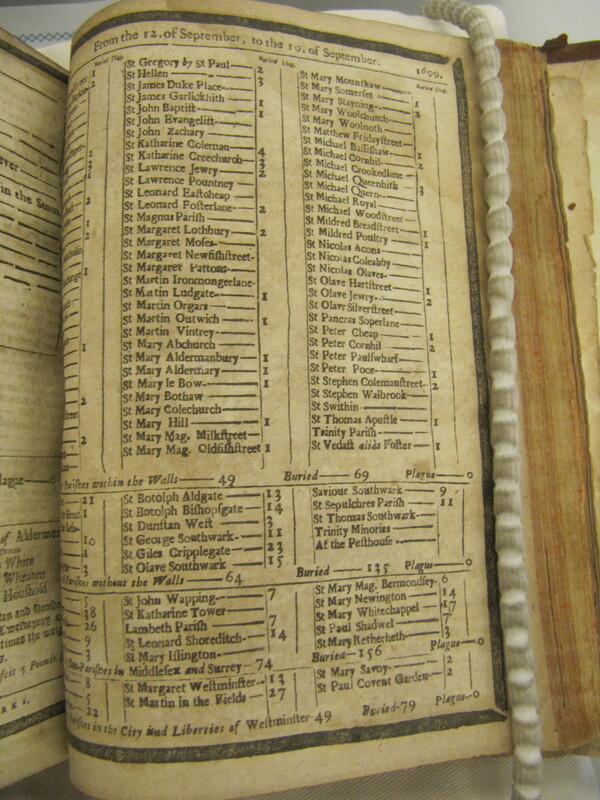 From the 12. of September, to the 19. of September. 1699.
St Gregory by St Paul 2
St Hellen 3
St James Duke Place
St James Garlickhith 1
St John Baptiſt 1
St John Evangeliſt
St John Zachary
St Katharine Coleman 4
St Katharine Creechurch 3
St Lawrence Jewry 2
St Lawrence Pountney
St Leonard Eaſtcheap
St Leonard Foſterlane 2
St Magnus Pariſh
St Margaret Lothbury 2
St Margaret Moſes
St Margaret Newfiſhſtreet
St Margaret Pattons
St Martin Ironmongerlane
St Martin Ludgate 1
St Martin Orgars
St Martin Outwich 1
St Martin Vintrey
St Mary Abchurch
St Mary Aldermanbury 1
St Mary Aldermary 1
St Mary le Bow 1
St Mary Bothaw
St Mary Colechurch
St Mary Hill 1
St Mary Mag. Milkſtreet
St Mary Mag. Oldfiſhſtreet 1
St Mary Mounthaw
St Mary Somerſet
St Mary Stayning 1
St Mary Woolchurch 2
St Mary Woolnoth
St Matthew Fridayſtreet
St Michael Baſſiſhaw 1
St Michael Cornhil 2
St Michael Crookedlane
St Michael Queenhith 3
St Michael Quern
St Michael Royal
St Michael Woodſtreet
St Mildred Breadſtreet 1
St Mildred Poultry 1
St Nicolas Acons
St Nicolas Coleabby
St Nicolas Olaves
St Olave Hartſtreet 1
St Olave Jewry 2
St Olave Silverſtreet
St Pancras Soperlane
St Peter Cheap 1
St Peter Cornhil 2
St Peter Paulſwharf
St Peter Poor 1
St Stephen Colemanſtreet 2
St Stephen Walbrook
St Swithin
St Thomas Apoſtle 1
Trinity Pariſh
St Vedaſt aliàs Foſter 1
Pariſhes within the Walls 49 Buried 69 Plague 0
St Botolph Aldgate 13
St Botolph Biſhopſgate 14
St Dunſtan Weſt 3
St George Southwark 11
St Giles Cripplegate 23
St Olave Southwark 15
Saviour Southwark 9
St Sepulchres Pariſh 11
St Thomas Southwark
Trinity Minories
At the Peſthouſe
Pariſhes without the Walls 64 Buried 135 Plague 0
St John Wapping 7
St Katharine Tower
Lambeth Pariſh 7
St Leonard Shoreditch 14
St Mary Iſlington
St Mary Mag. Bermondſey 6
St Mary Newington 14
St Mary Whitechappel 17
St Paul Shadwel 7
St Mary Retherheth 3
Pariſhes in Middleſex and Surrey 74 Buried 156 Plague 0
St Margaret Weſtminſter 13
St Martin in the Fields 27
St Mary Savoy 2
St Paul Covent Garden 2
Pariſhes in the City and Liberties of Weſtminſter 49 Buried 79 Plague 0